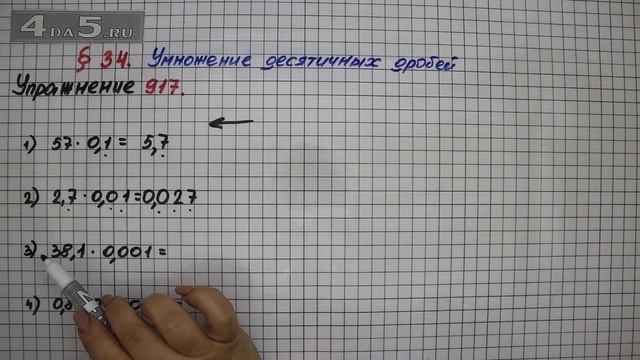 4DA5.RU
§ 34. Умножение десятичных дробей
Упражнение 917.
1) 57 · 0,1 = 5,7
2) 2,7 · 0,01 = 0,027
3) 38,1 · 0,001 =
4) 0,